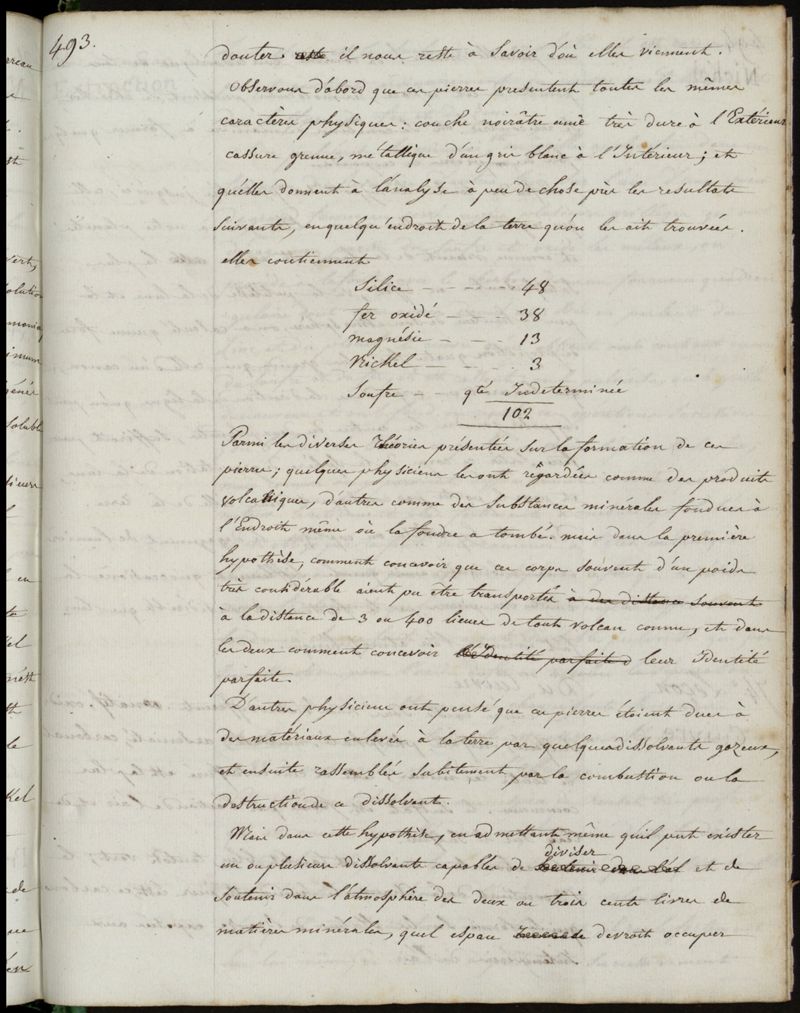 493.
douter il nous reste à Savoir d'où elles viennent.
Observons d'abord que ces pierres présentent toutes les mêmes
caractères physiques: couche noirâtre unie très dure à l'Extérieur
cassure grenue, métallique d'un gris blanc à l'Intérieur; et
qu'elles donnent à l'analyse à peu de chose près les resultats
suivants, en quelqu'endroit de la terre qu'on les ait trouvées.
elles contiennent
Silice - - - - - 48
fer oxidé - - - 38
magnésie - - - 13
Nickel - - - 3
Soufre - - qté Indeterminée
102
Parmi les diverses théories présentées sur la formation de ces
pierres; quelques physiciens les ont regardées comme des produits
volcaniques, d'autres comme des substances minérales fondues à
l'Endroit même où la foudre a tombé. mais dans la première
hypothèse, comment concevoir que ces corps souvent d'un poids
très considérable aient pu être transportés à des distances souvent
à la distance de 3 ou 400 lieues de tout volcan connu, et dans
les deux comment concevoir l'Identité parfaite d leur Identité
parfaite.
D'autres physiciens ont pensé que ces pierres étoient dues à
des matériaux enlevés à la terre par quelques dissolvants gazeux,
et ensuite rassemblés subitement par la combustion ou la
destruction de ce dissolvant.
Mais dans cette hypothèse, en admettant même qu'il put exister
diviser
un ou plusieurs dissolvants capables de et de
soutenir dans l'atmosphère des deux ou trois cents livres de
matières minérales, quel espace devroit occuper